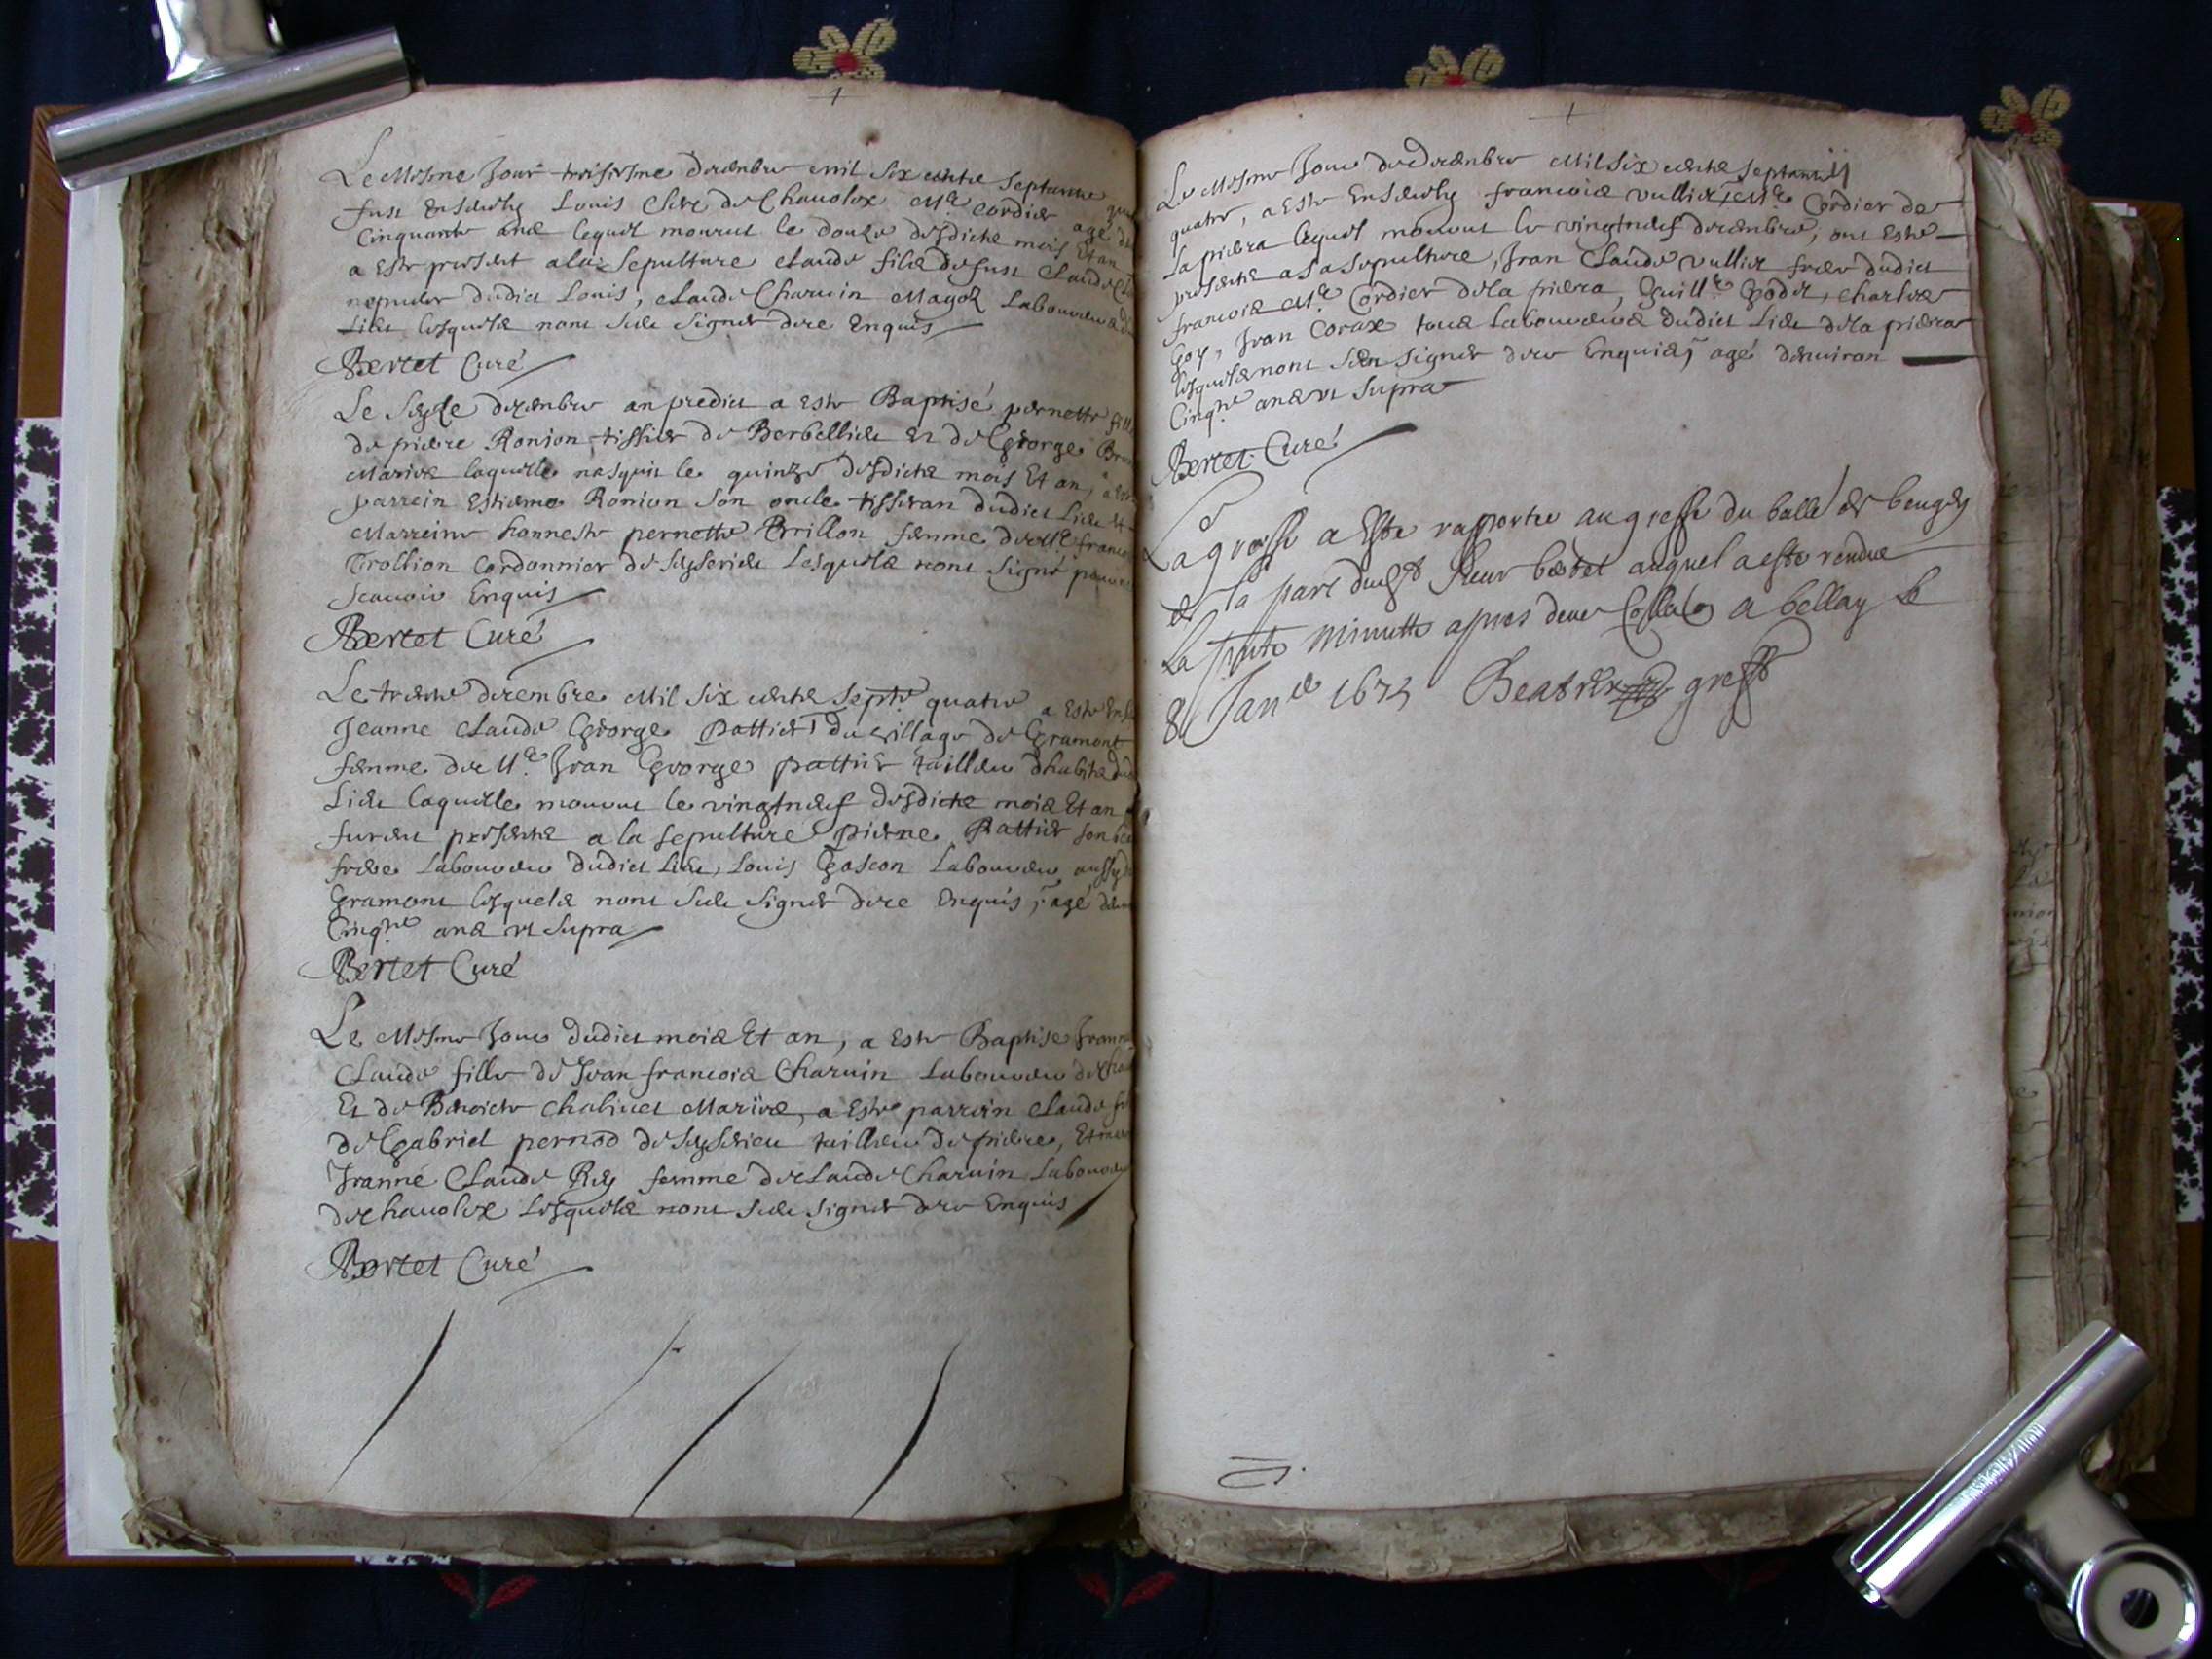 Le Mesme Jour treisiesme decembre mil six cents septante
fust Ensevely Louis Clerc de Chavolex Me cordier agé
Cinquante ans lequel mourut le douze desdicts mois Et an
a Este present a la Sepulture claude fils de fust claude
nepueu dudict Louis, claude Charvin Magox Laboureurs
Lieu lesquels nont sceu signer de ce Enquis
Bertet Curé
Le Seize decembre an predict a este Baptisé pernette
de pierre Ronion tissier de Berbellieu et de George
Mariés laquelle nasquit le quinze desdicts mois Et an,
parrein Estienne Ronion son oncle tisseran dudict Lieu
Marreine honneste pernette Brillon femme de Me
Trollion Cordonnier de Seyserieu Lesquels nont signé
scavoir Enquis
Bertet Curé
Le trente decembre Mil six cents septte quatre a este
Jeanne claude George Pattier du village de Gramont
femme de Me Jean George pattier tailleur dhabits
Lieu laquelle mourut le vingtneuf desdicts mois Et an
furent presents a la sepulture Pierre Pattier son
frere Laboureur dudict Lieu, Louis Gascon Laboureur aussy
Gramont lesquels nont sceu signer de ce Enquis, agé
Cinqte ans ut supra
Bertet Curé
Le Mesme Jour dudict mois Et an, a este Baptise
Claude fille de Jean francois Charvin Laboureur de
Et de Benoicte chaliuet Mariés, a Este parrein claude
de Gabriel pernod de Seyserieu tailleur de pierre,
Jeanne Claude Rey femme de claude Charvin Laboureur
de chavolex Lesquels nont sceu signer de ce Enquis
Bertet Curé
Le Mesme Jour de decembre Mil six cents septante
quatre, a este Ensevely francois vullier, Me Cordier de
La piera lequel mourut le vingtneuf decembre, ont este
presents a sa sepulture, Jean Claude vullier frere dudict
francois Me Cordier de la piera, Guille Godet, charles
Goy, Jean Corax tous Laboureurs dudict Lieu de la piera
lesquels nont sceu signer de ce Enquis, agé denviron
Cinqte ans ut supra
Bertet Curé
La grosse a Esté rapportee au greffe du balle de beugey
de la part dudt Sieur bertet auquel a este rendue
La pnte Minutte apres deue Collaon a bellay le
8 Janer 1675 greff